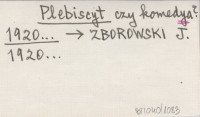 Plebiscyt czy komedya?
1920... → ZBOROWSKI J.
1920...
BJ1040/1083